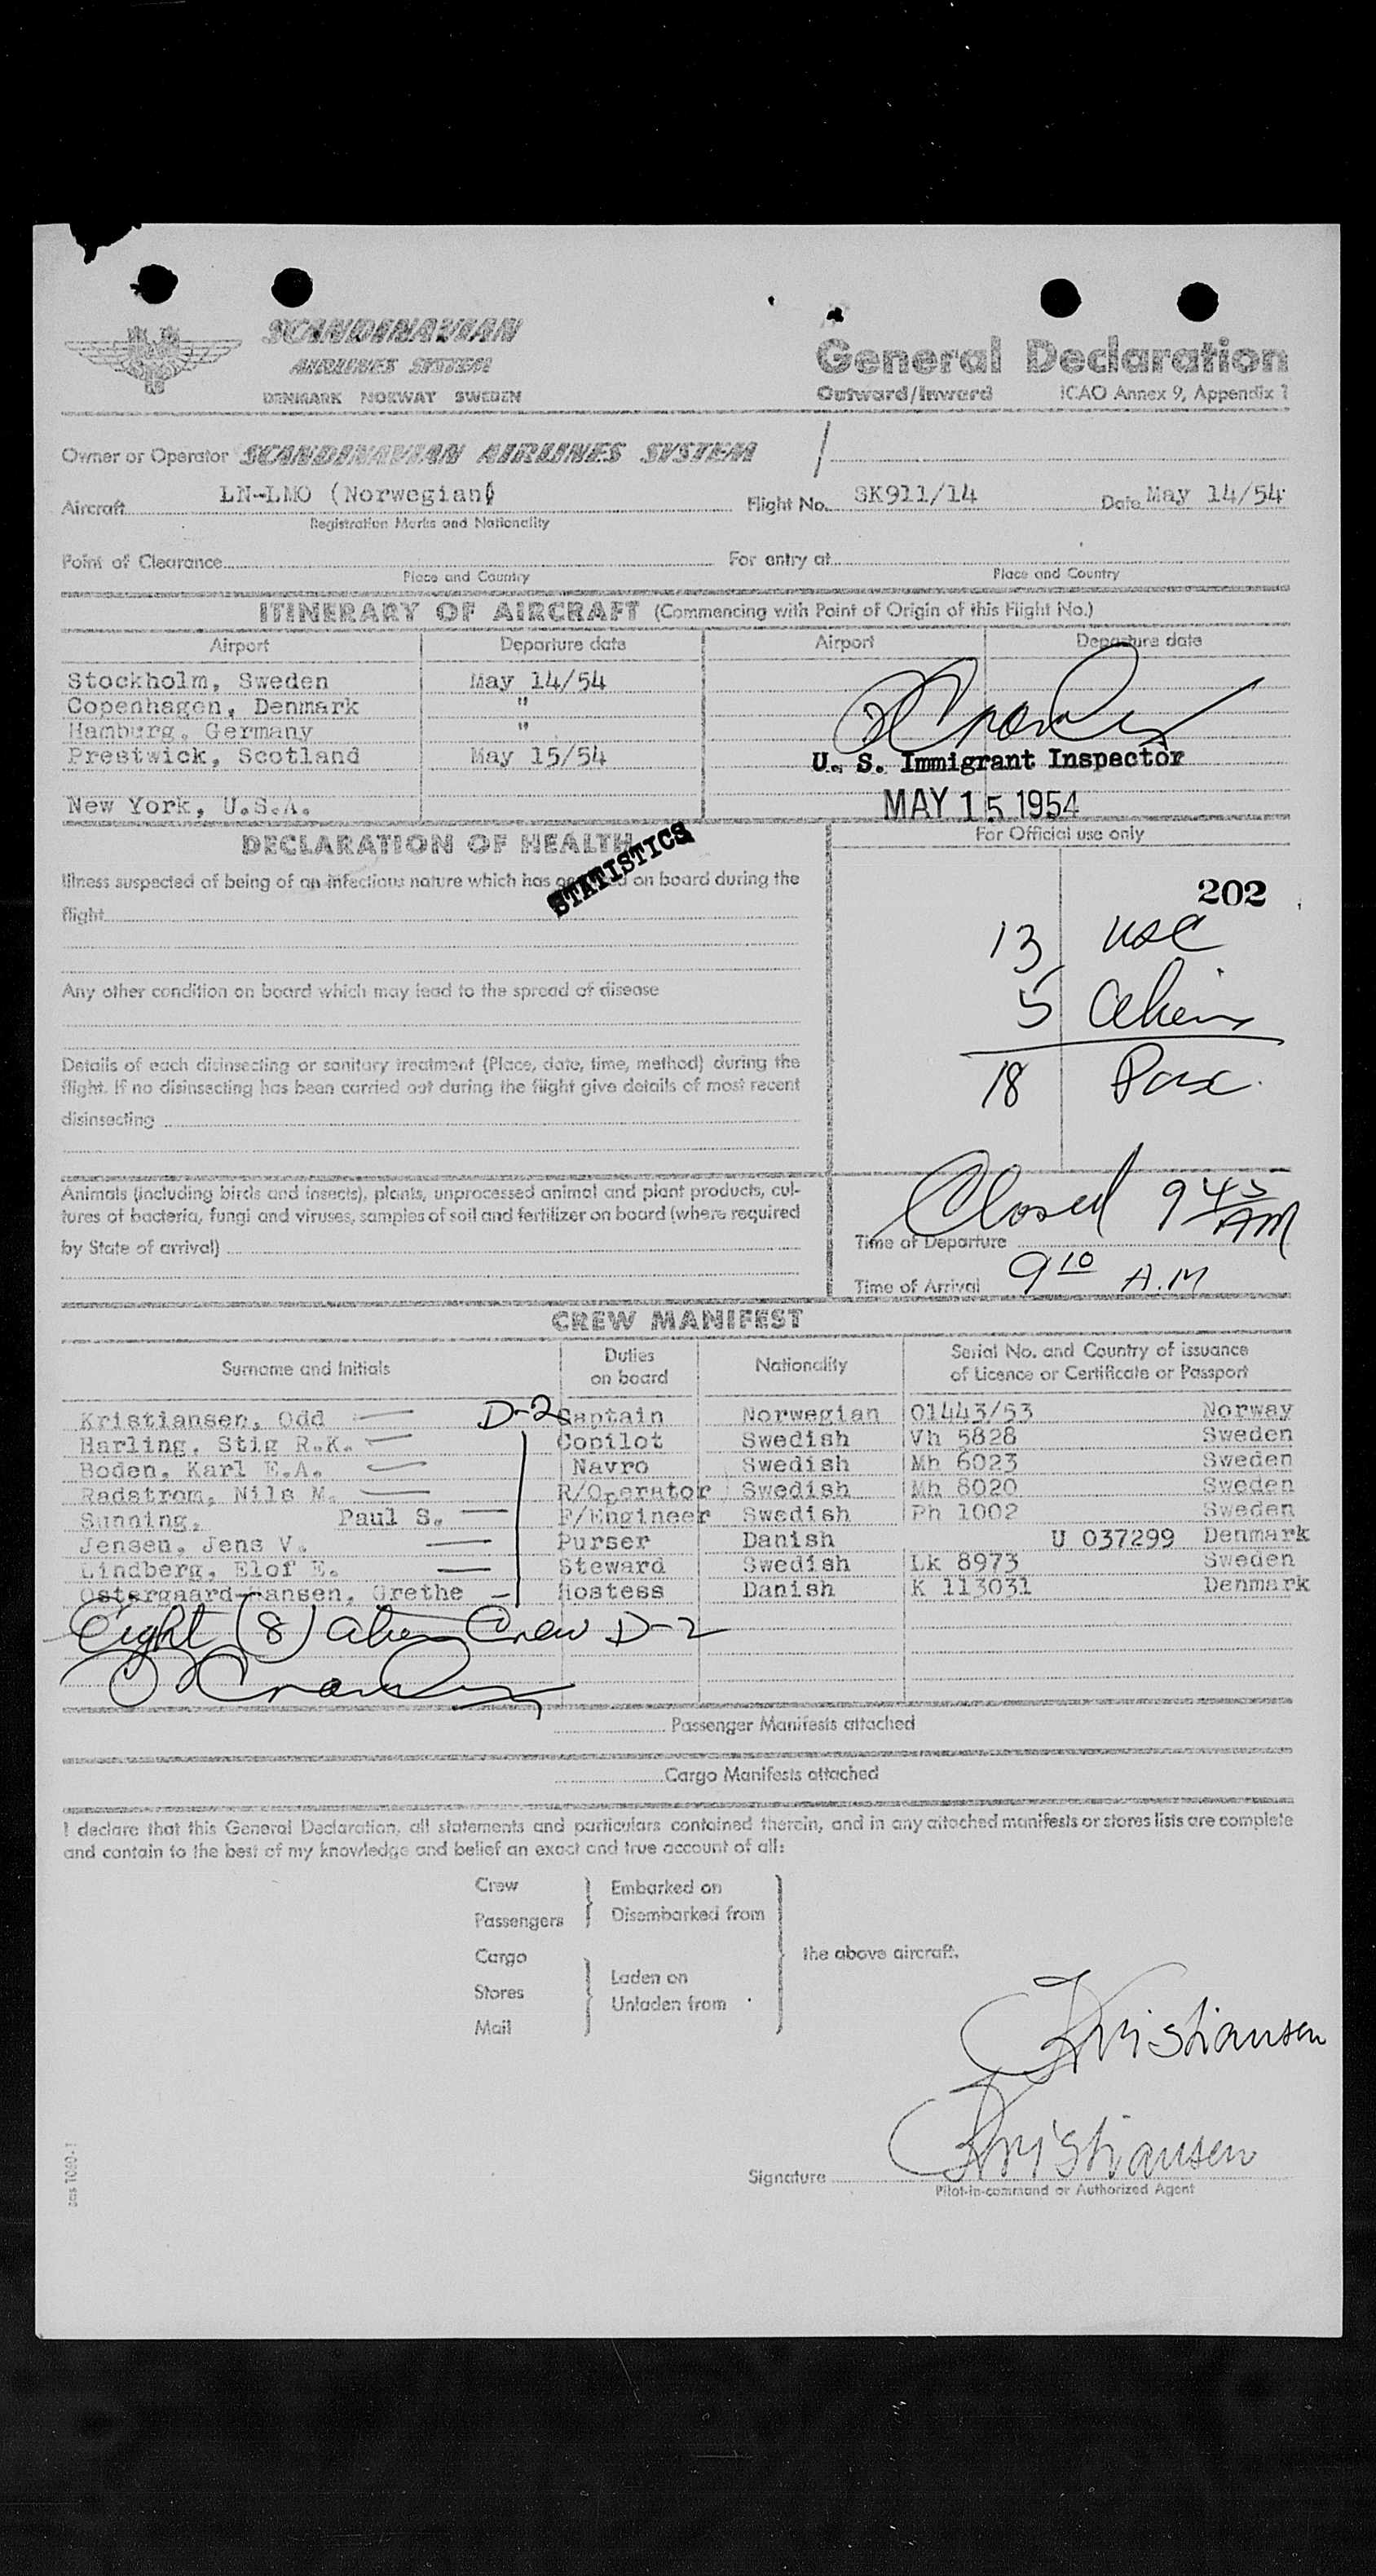 SCANDINAVIAN
AIRLINES SYSTEM
DENMARK NORWAY SWEDEN
General Declaration
Outward/Inward ICAO Annex 9, Appendix 1
Owner or Operator SCANDINAVIAN AIRLINES SYSTEM
Aircraft LN-LMO (Norwegian) Flight No. SK911/14 Date May 14/54
Registration Marks and Nationality
Point of Clearance For entry at
Place and Country Place and Country
ITINERARY OF AIRCRAFT (Commencing with Point of Origin of this Flight No.)
Airport Departure date Airport Departure date
Stockholm, Sweden May 14/54
Copenhagen, Denmark "
Hamburg, Germany "
Prestwick, Scotland May 15/54
U. S. Immigrant Inspector
New York, U.S.A.
MAY 15 1954
DECLARATION OF HEALTH For Official use only
STATISTICS
Illness suspected of being of an infectious nature which has on board during the
202
flight
13 USC
Any other condition on board which may lead to the spread of disease
5 Aliens
18 Pax.
Details of each disinsecting or sanitary treatment (Place, date, time, method) during the
flight. If no disinsecting has been carried out during the flight give details of most recent
disinsecting
Animals (including birds and insects), plants, unprocessed animal and plant products, cul-
tures of bacteria, fungi and viruses, samples of soil and fertilizer on board (where required
by State of arrival)
Closed 9 45 AM
Time of Departure
Time of Arrival 9 10 A.M
CREW MANIFEST
Surname and Initials Duties on board Nationality Serial No. and Country of issuance of Licence or Certificate or Passport
Kristiansen, Odd D-2 Captain Norwegian 01443/53 Norway
Harling, Stig R.K. Copilot Swedish Vh 5828 Sweden
Boden, Karl E.A. Navro Swedish Mh 6023 Sweden
Radstrom, Nils M. R/Operator Swedish Mh 8020 Sweden
Sunning, Paul S. F/Engineer Swedish Ph 1002 Sweden
Jensen, Jens V. Purser Danish U 037299 Denmark
Lindberg, Elof E. Steward Swedish Lk 8973 Sweden
Ostergaard-Hansen, Grethe Hostess Danish K 113031 Denmark
Eight (8) Alien Crew D-2
Passenger Manifests attached
Cargo Manifests attached
I declare that this General Declaration, all statements and particulars contained therein, and in any attached manifests or stores lists are complete
and contain to the best of my knowledge and belief an exact and true account of all:
Crew Embarked on
Passengers Disembarked from
Cargo the above aircraft.
Stores Laden on
Unladen from
Mail
Kristiansen
Kristiansen
Signature
Pilot-in-command or Authorized Agent
sas 1080-1